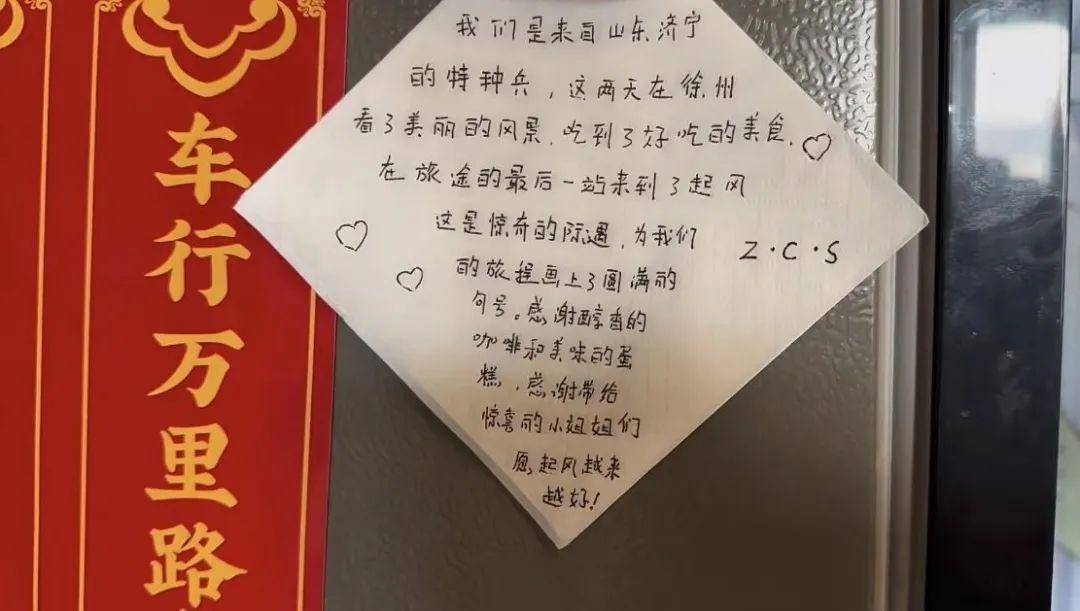 车行万里路
我们是来自山东济宁
的特种兵，这两天在徐州
看了美丽的风景，吃到了好吃的美食，
在旅途的最后一站来到了起风
这是惊奇的际遇，为我们
的旅程画上了圆满的
句号。感谢醇香的
咖啡和美味的蛋
糕，感谢带给
惊喜的小姐姐们
愿起风越来
越好！
Z·C·S